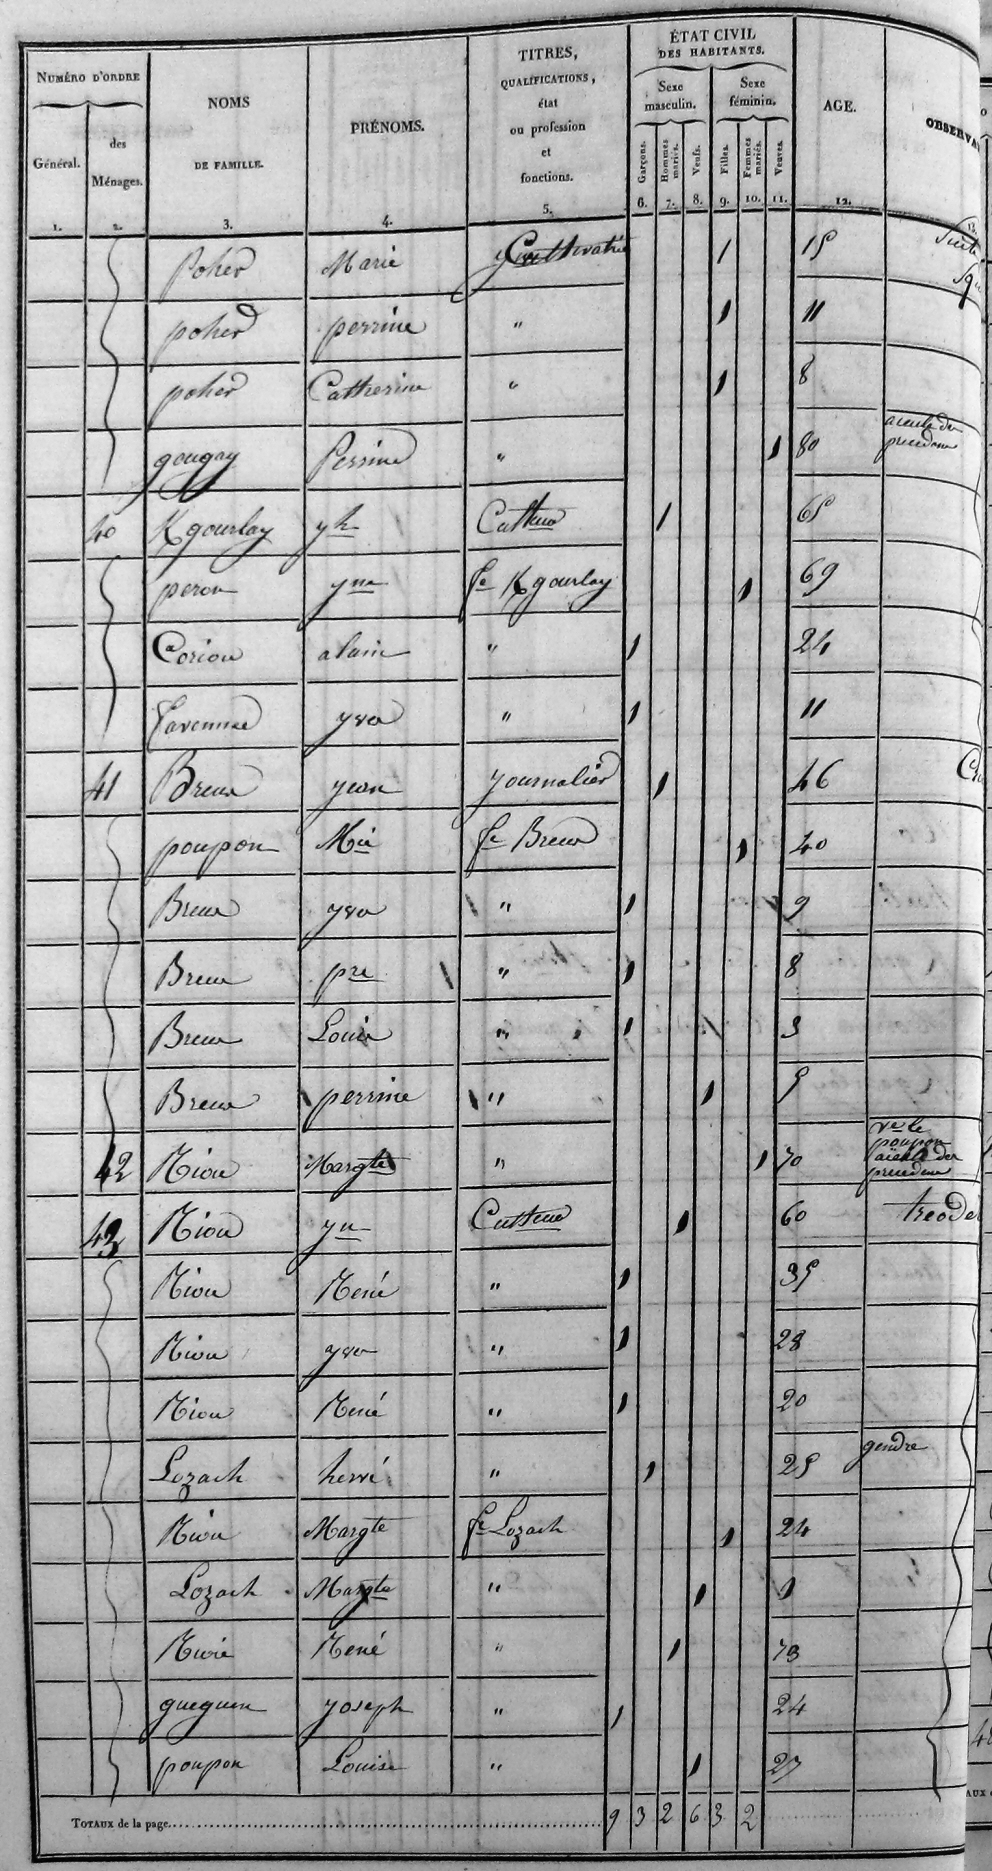 NUMÉRO D'ORDRE
Général.
des
Ménages.
NOMS
DE FAMILLE.
PRÉNOMS.
TITRES,
QUALIFICATIONS,
état
ou profession
et
fonctions.
ÉTAT CIVIL
DES HABITANTS.
Sexe
masculin.
Sexe
féminin.
Garçons.
Hommes
mariés.
Veufs.
Filles.
Femmes
mariés.
Veuves.
AGE.
OBSERVA
1. 2. 3. 4. 5. 6. 7. 8. 9. 10. 11. 12.
Poher Marie 1 15
poher perrine " 1 11
poher Catherine " 1 8
gougay Perrine " 1 80 aieule des
40 Kgourlay yh 1 65
peron yne fe Kgourlay 1 69
Coriou alain " 1 24
yves " 1 11
41 Breus yean yournalier 1 46
poupon Mie fe Breus 1 40
Breus yves " 1 9
Breus pre " 1 8
Breus Louis " 1 3
Breus perrine " 1 5
42 Riou Margte " 1 70 ve le
poupon
aïeule des
43 Riou 1 60
Riou René " 1 35
Riou yves " 1 28
Riou René " 1 20
Lozach hervé " 1 25 gendre
Riou Margte fe Lozach 1 24
Lozach Margte " 1 1
René " 1 73
gueguen yoseph " 1 24
poupon Louise " 1 27
TOTAUX de la page 9 3 2 6 3 2